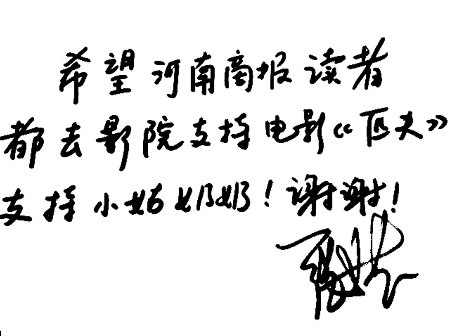 希望河南商报读者
都去影院支持电影《匹夫》
支持小姑奶奶！谢谢！